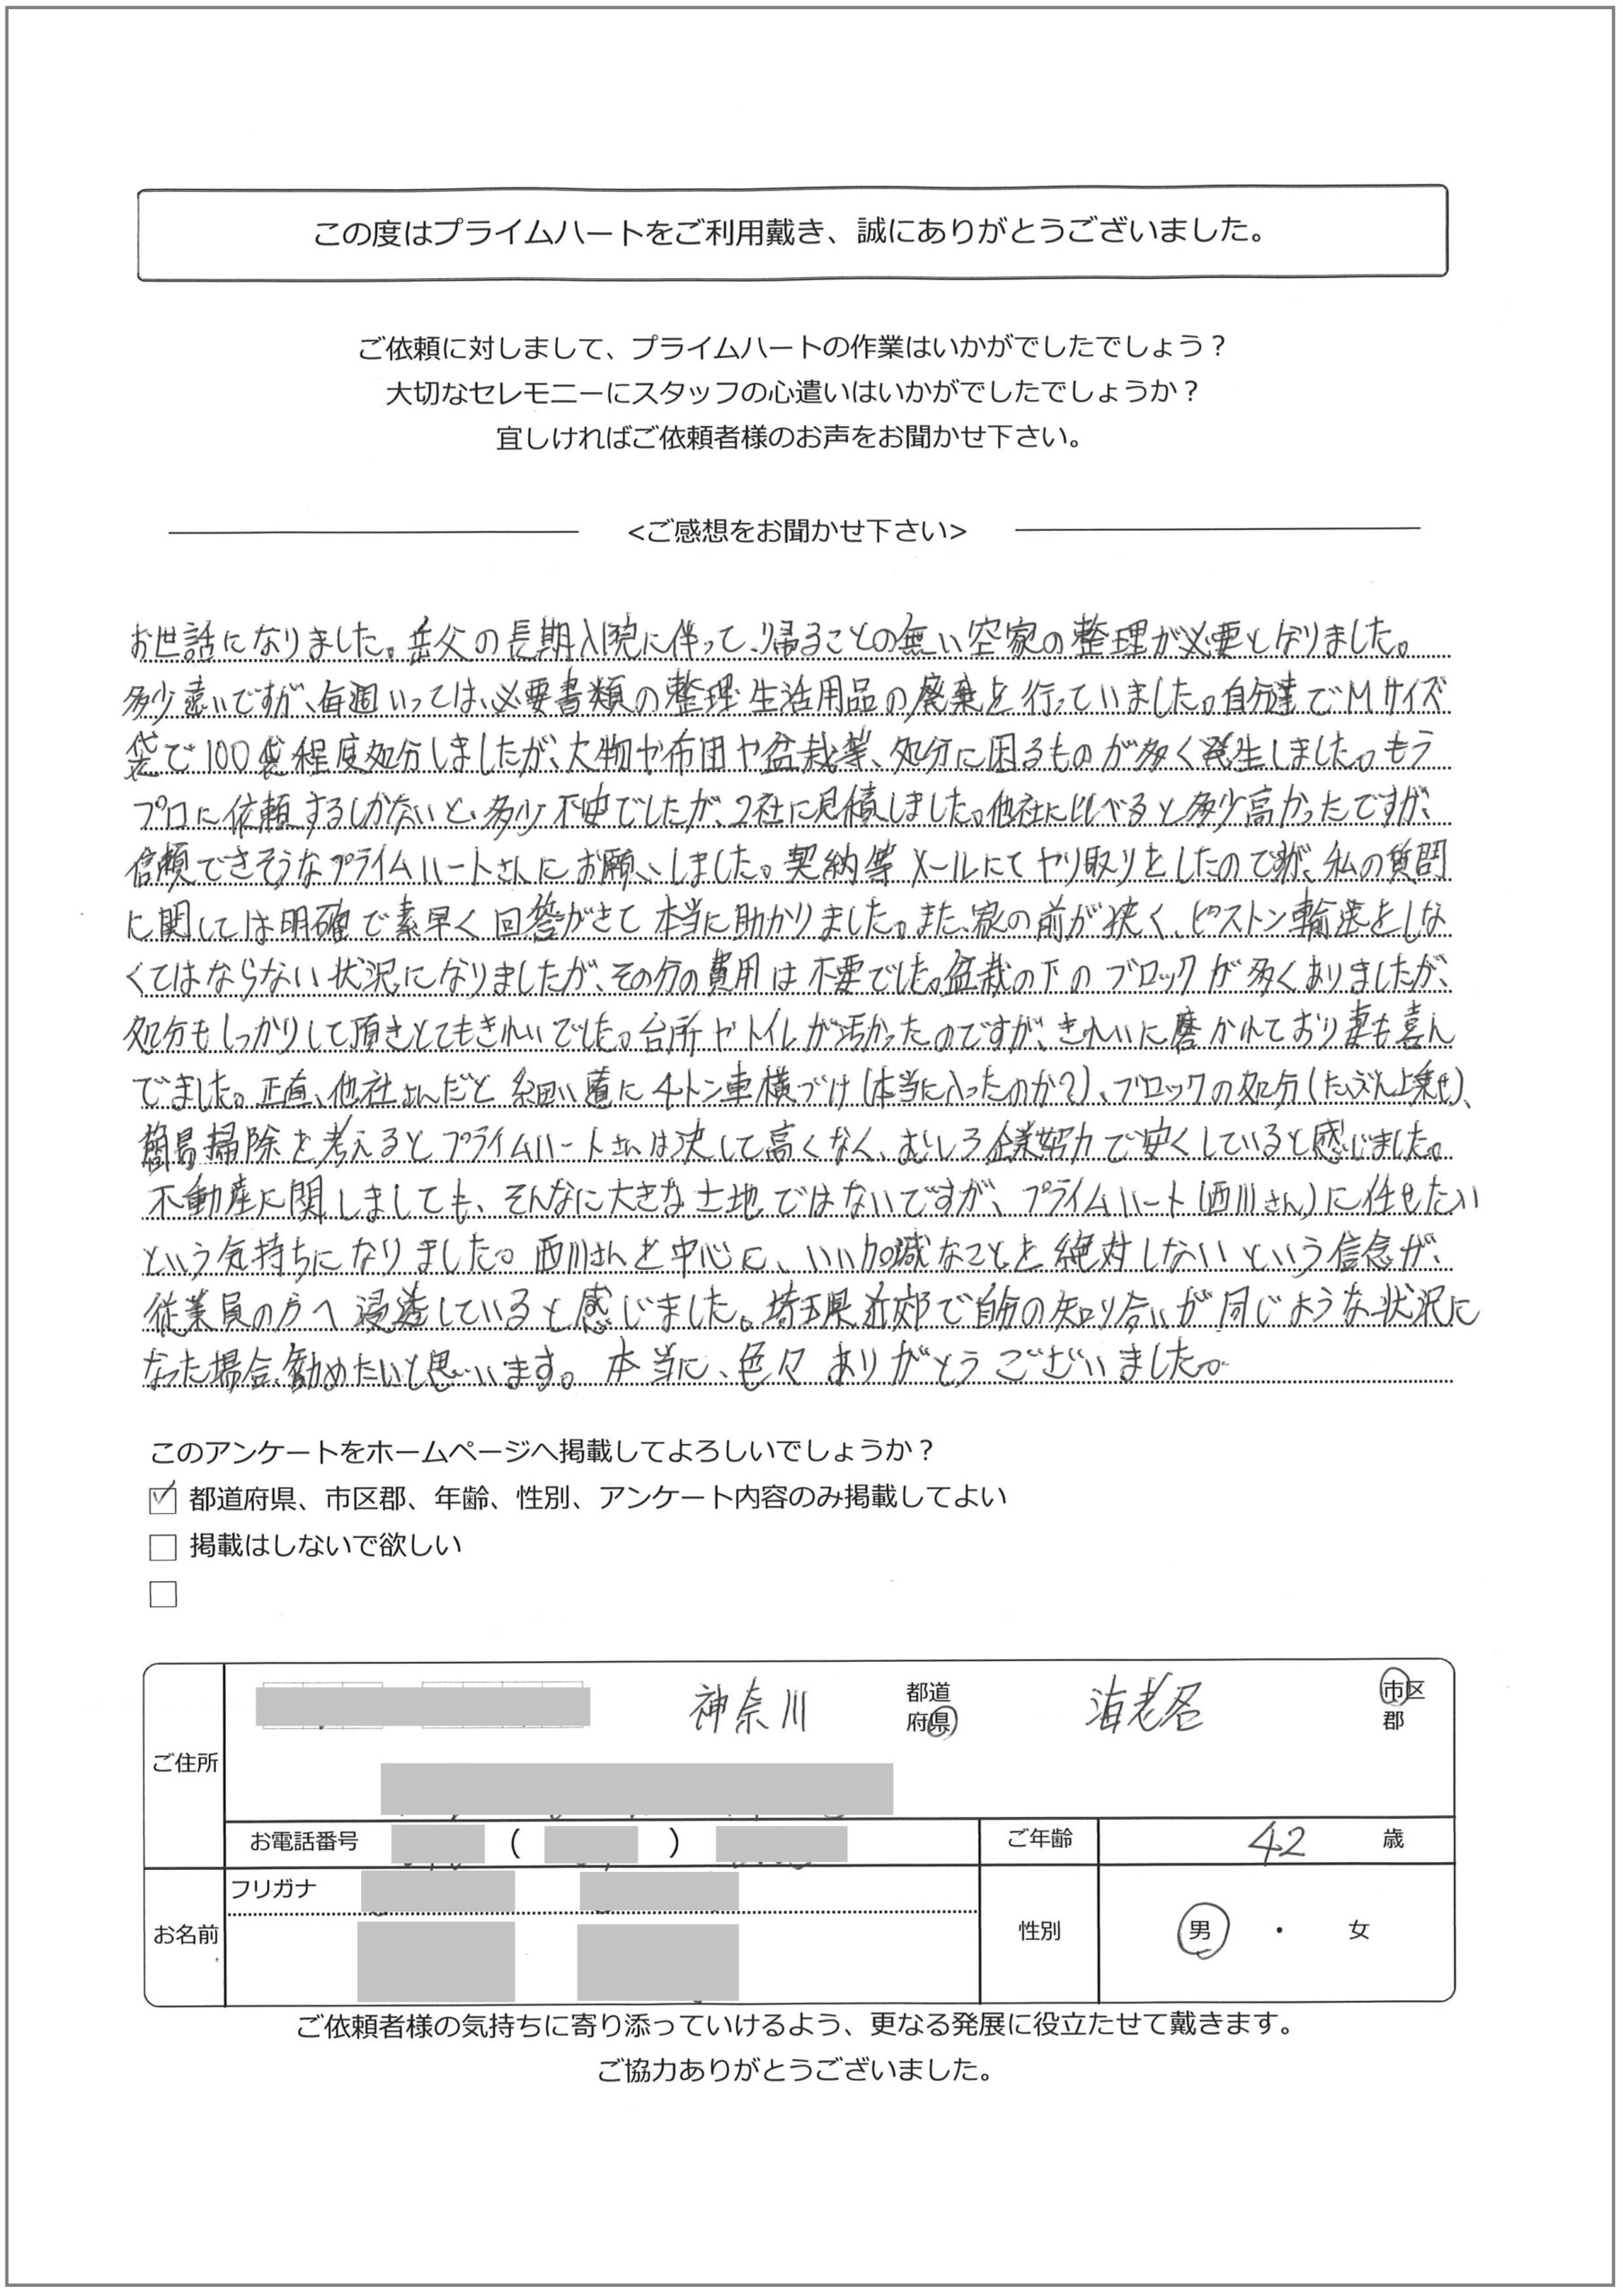 この度はプライムハートをご利用戴き、誠にありがとうございました。
ご依頼に対しまして、プライムハートの作業はいかがでしたでしょう？
大切なセレモニーにスタッフの心遣いはいかがでしたでしょうか？
宜しければご依頼者様のお声をお聞かせ下さい。
<ご感想をお聞かせ下さい>
お世話になりました。岳父の長期入院に伴って、帰ることの無い空家の整理が必要となりました。
多少遠いですが、毎週いっては、必要書類の整理 生活用品の廃棄を行っていました。自分達でMサイズ
袋で100袋程度処分しましたが、大物や布団や盆栽等、処分に困るものが多く発生しました。もう
プロに依頼するしかないと、多少不安でしたが、2社に見積しました。他社に比べると多少高かったですが、
信頼できそうなプライムハートさんにお願いしました。契約等メールにてヤリ取りをしたのですが、私の質問
に関しては明確で素早く回答がきて本当に助かりました。また、家の前が狭く、ピストン輸送をしな
くてはならない状況になりましたが、その分の費用は不要でした。盆栽の下のブロックが多くありましたが、
処分もしっかりして頂きとてもきれいでした。台所やトイレが汚かったのですが、きれいに磨かれており妻も喜ん
でました。正直、他社さんだと細い道に4トン車横づけ(本当に入ったのか?)、ブロックの処分(たぶん上乗せ)、
簡易掃除を考えるとプライムハートさんは決して高くなく、むしろ企業努力で安くしていると感じました。
不動産に関しましても、そんなに大きな土地ではないですが、プライムハート(西川さん)に任せたい
という気持ちになりました。西川さんを中心に、いい加減なことを絶対しないという信念が、
従業員の方へ浸透していると感じました。埼玉県近郊で自分の知り合いが同じような状況に
なった場合、勧めたいと思います。本当に、色々ありがとうございました。
このアンケートをホームページへ掲載してよろしいでしょうか？
都道府県、市区郡、年齢、性別、アンケート内容のみ掲載してよい
掲載はしないで欲しい
ご住所 神奈川 都道府県 海老名 市区郡
お電話番号 ( ) ご年齢 42 歳
フリガナ
お名前 性別 男 ・ 女
ご依頼者様の気持ちに寄り添っていけるよう、更なる発展に役立たせて戴きます。
ご協力ありがとうございました。